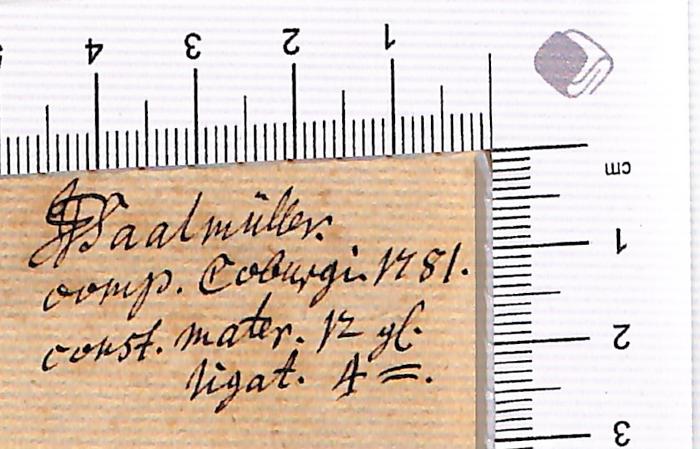 4 3 2 1
cm
1
2
3
Saalmüller.
comp. Coburgi. 1781.
const. mater. 12 gl.
ligat. 4 =.